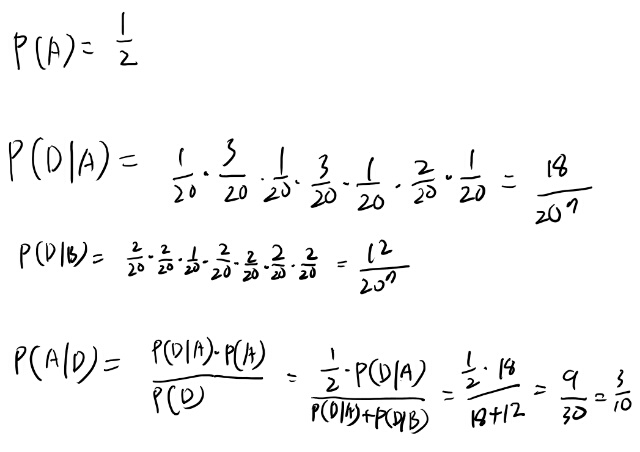 P(A) = 1/2
P(D|A) = 1/20 · 3/20 · 1/20 · 3/20 · 1/20 · 2/20 · 1/20 = 18/20^7
P(D|B) = 2/20 · 2/20 · 1/20 · 2/20 · 2/20 · 2/20 · 2/20 = 12/20^7
P(A|D) = P(D|A)·P(A)/P(D) = 1/2 · P(D|A)/P(D|A)+P(D|B) = 1/2 · 18/18+12 = 9/30 = 3/10